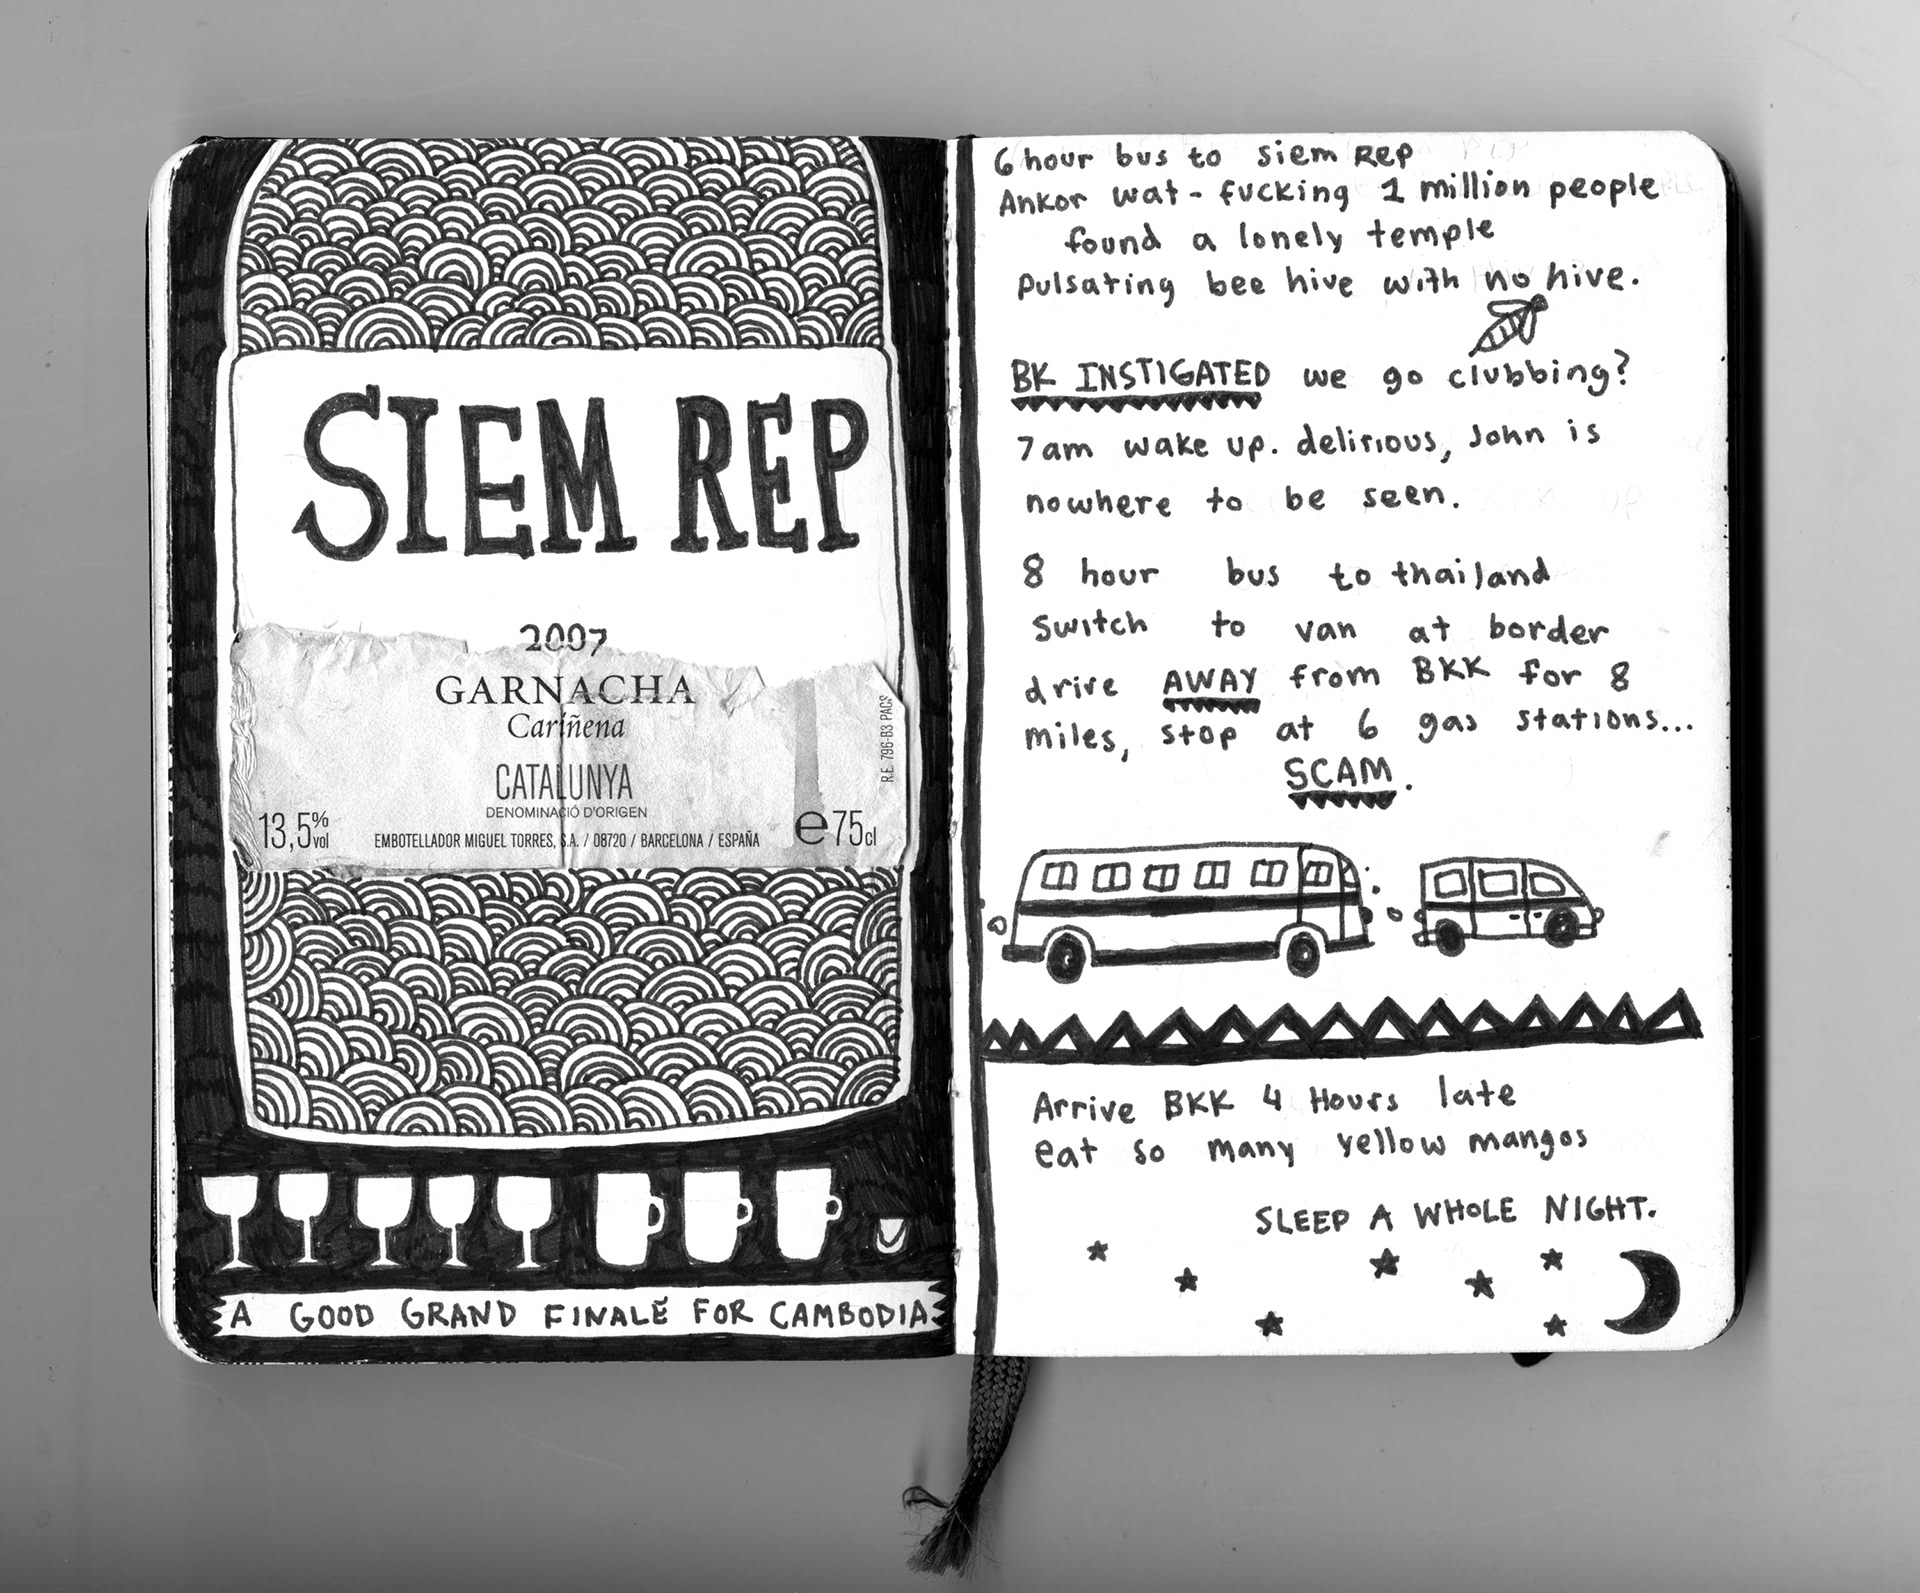 SIEM REP
2007
GARNACHA
Cariñena
CATALUNYA
DENOMINACIÓ D'ORIGEN
13,5% vol
EMBOTELLADOR MIGUEL TORRES, S.A. / 08720 / BARCELONA / ESPAÑA
e 75 cl
R.E. 796-B3 PACS
A GOOD GRAND FINALĚ FOR CAMBODIA
6 hour bus to siem Rep
Ankor wat - fucking 1 million people
found a lonely temple
Pulsating bee hive with no hive.
BK INSTIGATED we go clubbing?
7am wake up. delirious, John is
nowhere to be seen.
8 hour bus to thailand
Switch to van at border
drive AWAY from BKK for 8
miles, stop at 6 gas stations...
SCAM.
Arrive BKK 4 Hours late
eat so many yellow mangos
SLEEP A WHOLE NIGHT.